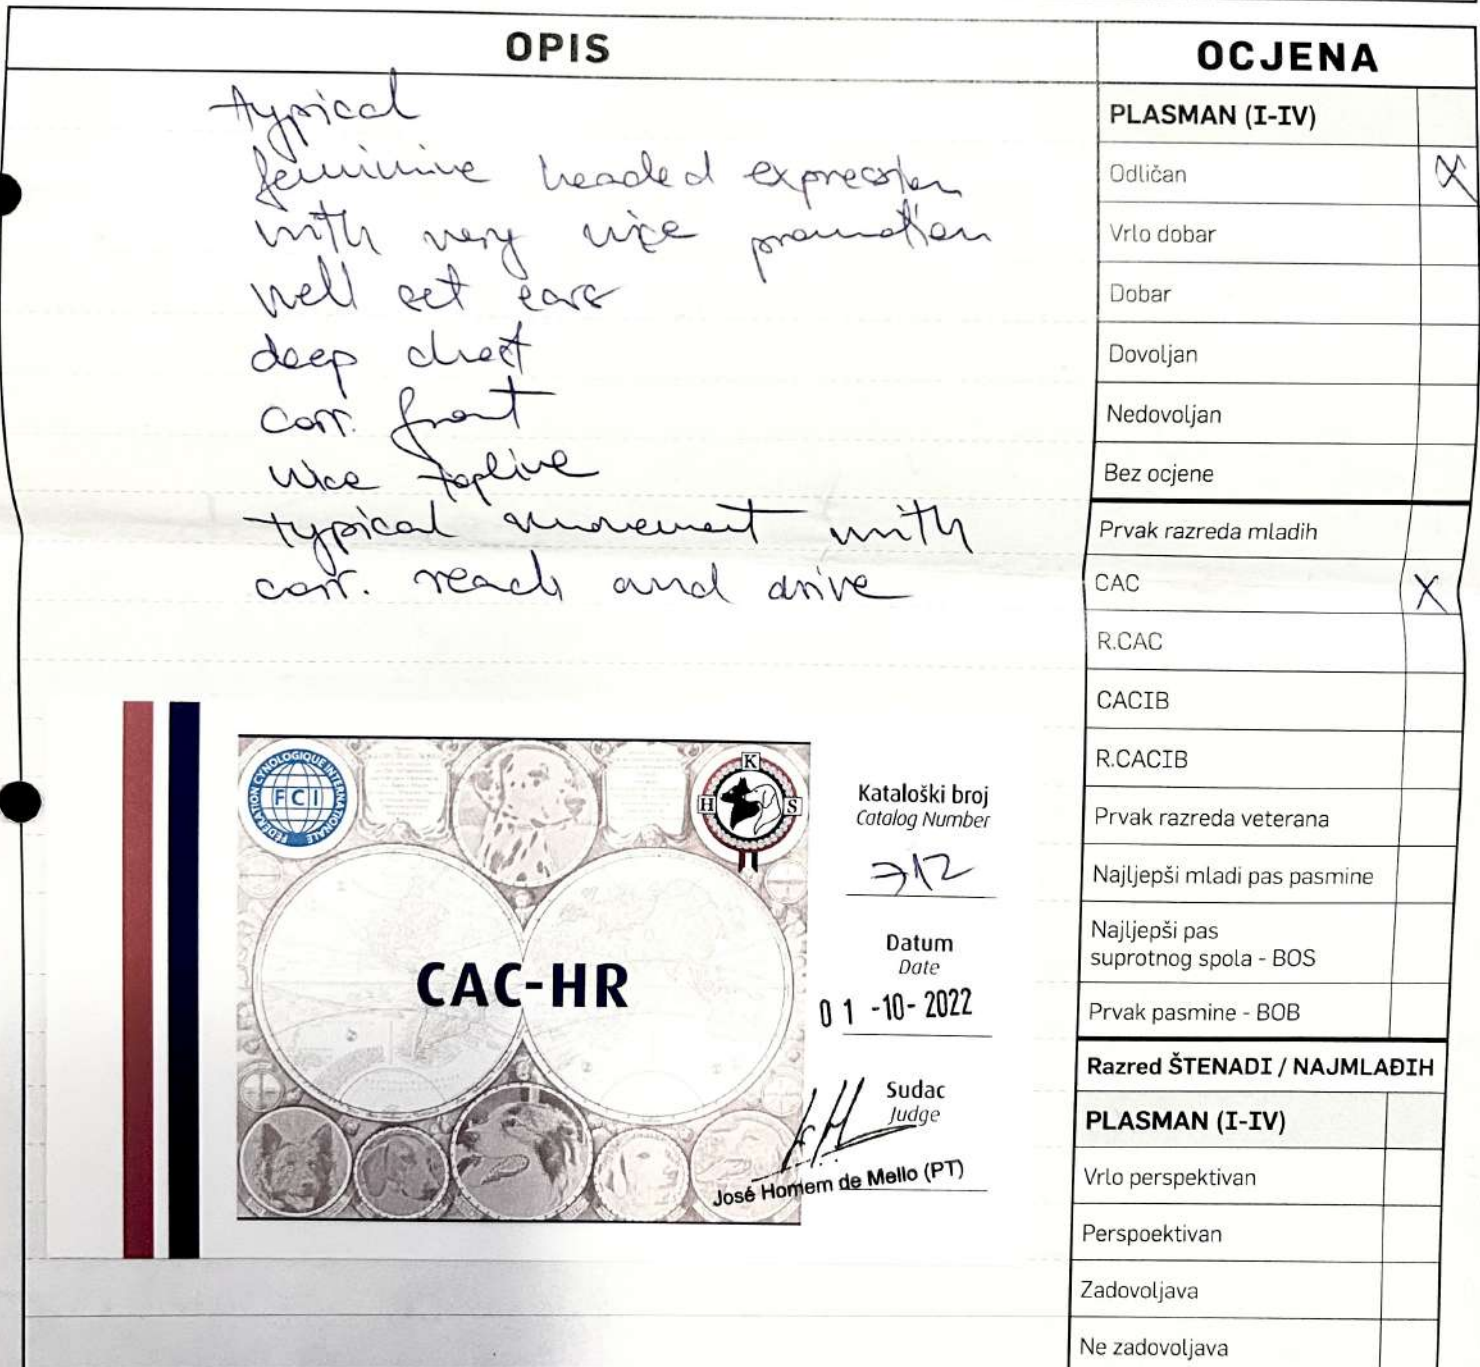 OPIS
typical
feminine headed expression
with very nice
well set ears
deep chest
corr. front
nice topline
typical movement with
corr. reach and drive
FEDERATION CYNOLOGIQUE INTERNATIONALE
FCI
K
H S
CAC-HR
Kataloški broj
Catalog Number
712
Datum
Date
01 -10- 2022
Sudac
Judge
José Homem de Mello (PT)
OCJENA
PLASMAN (I-IV)
Odličan X
Vrlo dobar
Dobar
Dovoljan
Nedovoljan
Bez ocjene
Prvak razreda mladih
CAC X
R.CAC
CACIB
R.CACIB
Prvak razreda veterana
Najljepši mladi pas pasmine
Najljepši pas
suprotnog spola - BOS
Prvak pasmine - BOB
Razred ŠTENADI / NAJMLAĐIH
PLASMAN (I-IV)
Vrlo perspektivan
Perspoektivan
Zadovoljava
Ne zadovoljava